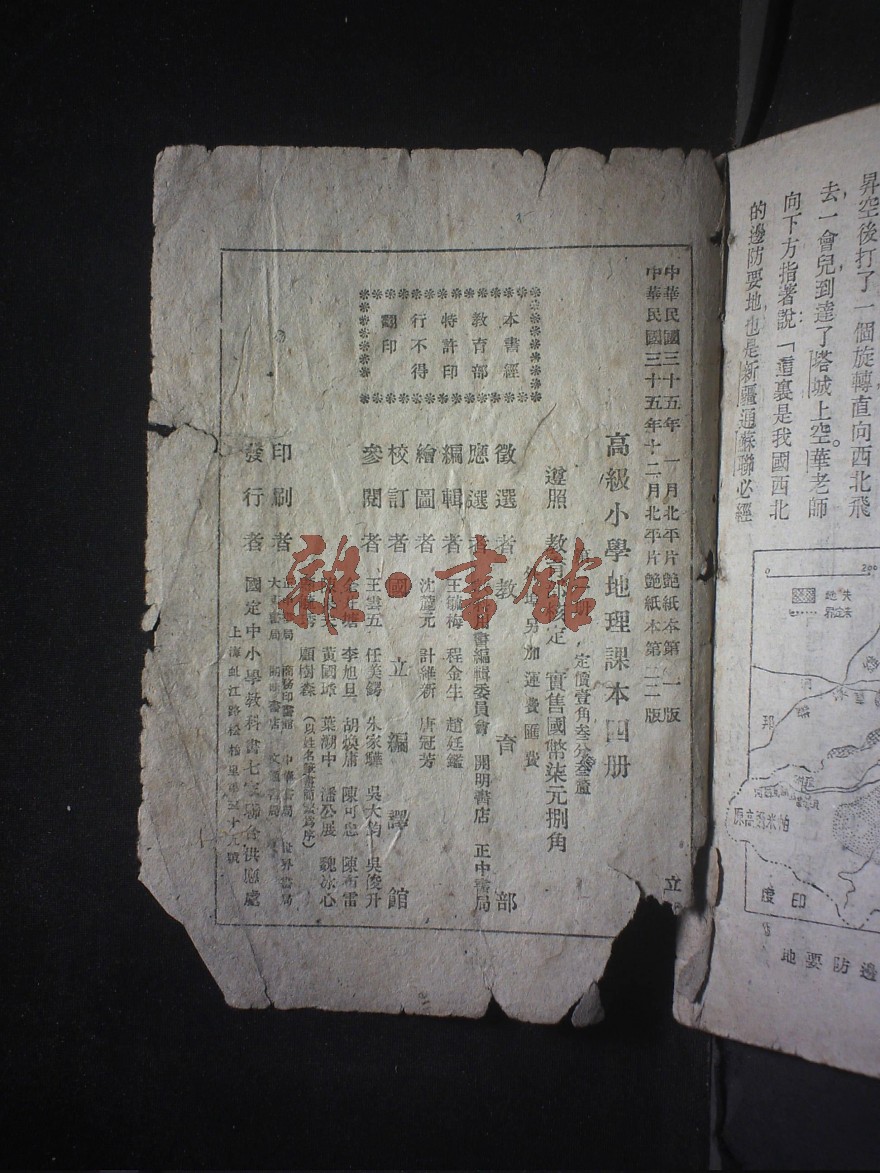 昇空後打了一個旋轉直向西北飛
去一會兒到達了塔城上空。華老師
向下方指著說:「這裏是我國西北
的邊防要地也是新疆通蘇聯必經
0 200
失地
未定界
帕米爾高原
印度
邊防要地
中華民國三十五年 一月北平片艶紙本第一版
中華民國三十五年十二月北平片艶紙本第二一版
高級小學地理課本四册
定價壹角叁分叁釐
遵照 教育部核定 實售國幣柒元捌角
另加運費匯費
本書經
教育部
特許印
行不得
翻印
徵選者 教育部
應選者 用書編輯委員會 開明書店 正中書局
編輯者 王毓梅 程金生 趙廷鑑
繪圖者 沈麓元 計維新 唐冠芳
校訂者 國立編譯館
參閱者 王雲五 任美鍔 朱家驊 吳大鈞 吳俊升
李旭旦 胡煥庸 陳可忠 陳布雷
黃國璋 葉溯中 潘公展 魏冰心
顧樹森 (以姓名筆畫簡繁爲序)
印刷者 商務印書館 中華書局 世界書局
大東書局
發行者 國定中小學教科書七家聯合供應處
上海虬江路松柏里第三十九號
雜·書館